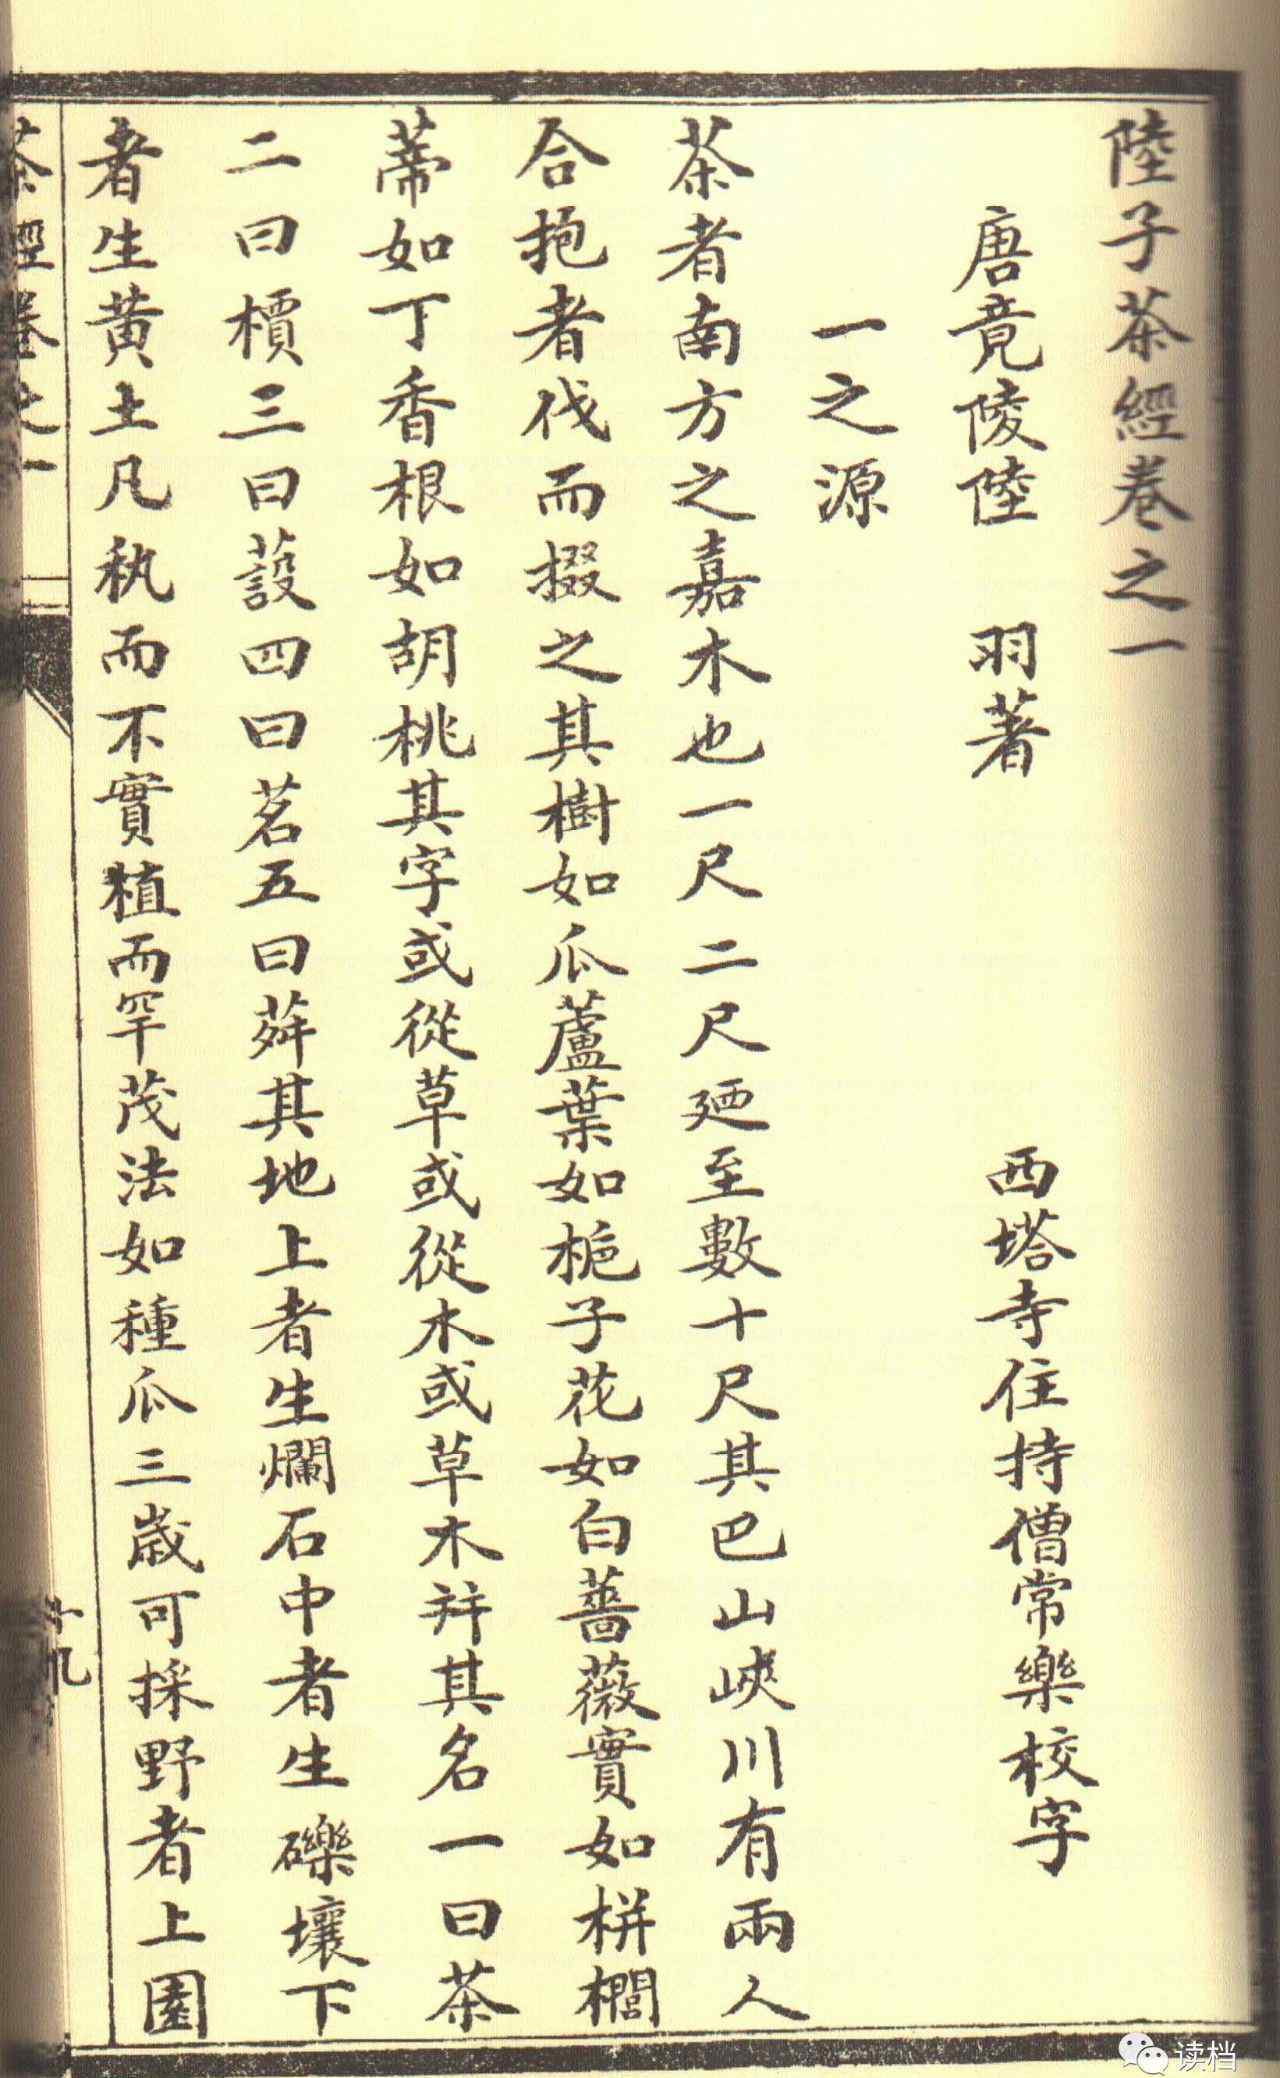 陸子茶經卷之一
唐竟陵陸　羽著　西塔寺住持僧常樂校字
一之源
茶者南方之嘉木也一尺二尺廼至數十尺其巴山峽川有兩人
合抱者伐而掇之其樹如瓜蘆葉如梔子花如白薔薇實如栟櫚
蒂如丁香根如胡桃其字或從草或從木或草木并其名一曰茶
二曰檟三曰蔎四曰茗五曰荈其地上者生爛石中者生礫壤下
者生黄土凡秇而不實植而罕茂法如種瓜三歲可採野者上園
茶經卷之一
十九
读档